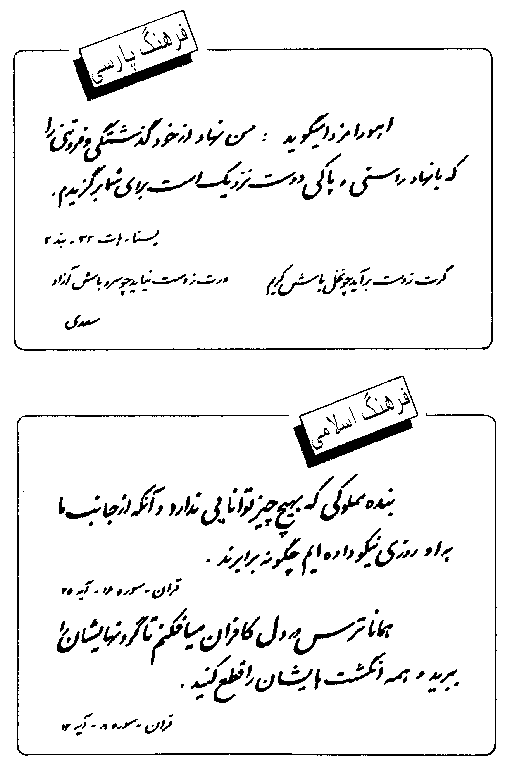 فرهنگ پارسی
اهورامزدا میگوید : من نهاد از خود گذشتگی و فروتنی را
که با نهاد راستی و پاکی دوست نزدیک است برای شما برگزیدم.
یسنا - هات ۳۲ - بند ۲
گرت ز دست برآید چو نخل باش کریم
ورت ز دست نیاید چو سرو باش آزاد
سعدی
فرهنگ اسلامی
بنده مملوکی که بهیچ چیز توانایی ندارد و آنکه از جانب ما
به او روزی نیکو داده ایم چگونه برابرند .
قرآن - سوره ۱۶ - آیه
همانا ترس در دل کافران میافکنم تا گردنهایشان را
ببرید و همه انگشت هایشان را قطع کنید .
قرآن - سوره ۸ - آیه ۱۲